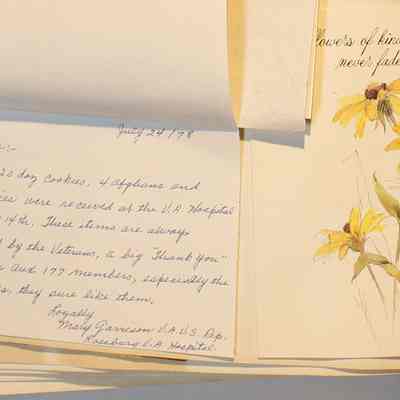 July 24/78
20 doz cookies, 4 afghans and
were received at the V.A. Hospital
14th. These items are always
by the Veterans, a big "Thank you"
Aud 177 members, especially the
they sure like them.
Loyally
Mary Garrison V.A.V.S. Dep.
Roseburg V.A. Hospital.
lowers of kin
never fade